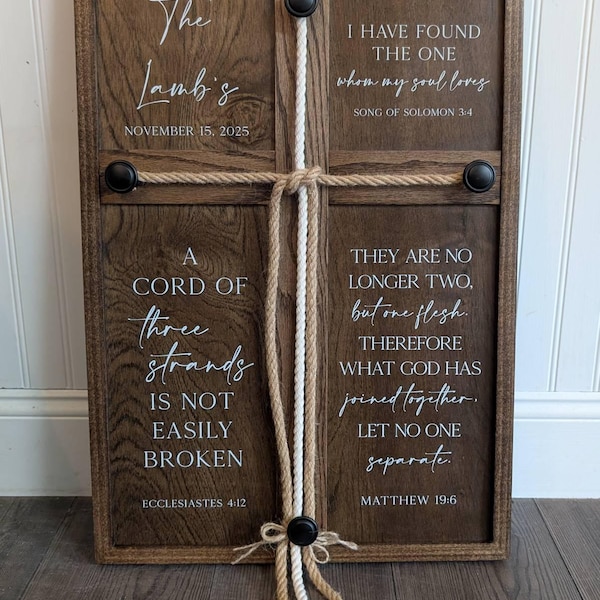 The
Lamb's
NOVEMBER 15, 2025
I HAVE FOUND
THE ONE
whom my soul loves
SONG OF SOLOMON 3:4
A
CORD OF
three
strands
IS NOT
EASILY
BROKEN
ECCLESIASTES 4:12
THEY ARE NO
LONGER TWO,
but one flesh.
THEREFORE
WHAT GOD HAS
joined together,
LET NO ONE
separate.
MATTHEW 19:6